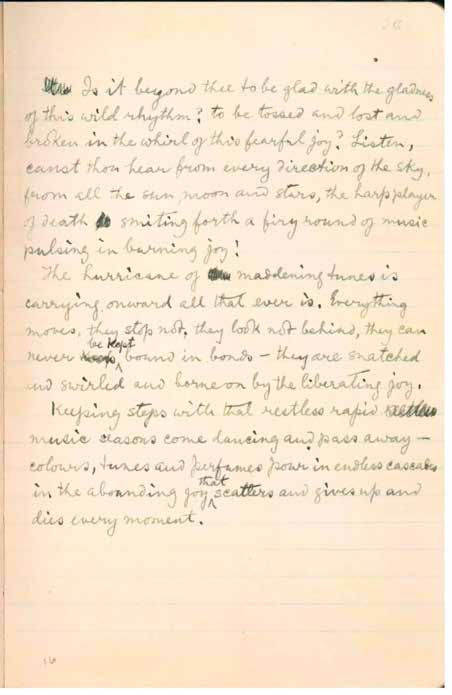 Is it beyond thee to be glad with the gladness
of this wild rhythm? to be tossed and lost and
broken in the whirl of this fearful joy? Listen,
canst thou hear from every direction of the sky,
from all the sun, moon and stars, the harpplayer
of death smiting forth a firy round of music
pulsing in burning joy!
The hurricane of maddening tunes is
carrying onward all that ever is. Everything
moves, they stop not, they look not behind, they can
never be kept bound in bonds – they are snatched
and swirled and borne on by the liberating joy.
Keeping steps with that restless rapid
music seasons come dancing and pass away –
colours, tunes and perfumes pour in endless cascades
in the abounding joy that scatters and gives up and
dies every moment.
16